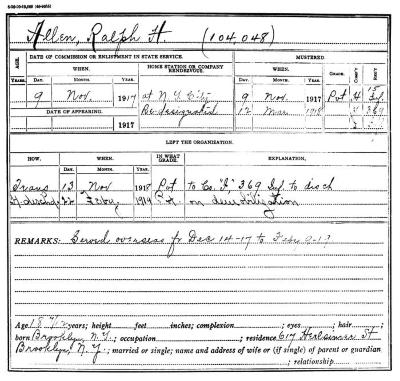 Allen, Ralph H. (104,048)
AGE. DATE OF COMMISSION OR ENLISTMENT IN STATE SERVICE. MUSTERED.
WHEN. HOME STATION OR COMPANY RENDEZVOUS. WHEN. GRADE. COMP'Y REG'T
YEARS. DAY. MONTH. YEAR. DAY. MONTH. YEAR.
9 Nov. 1917 at N.Y. City 9 Nov. 1917 Pvt H 15 Inf.
DATE OF APPEARING. Re-designated 12 Mar 1918 369
1917
LEFT THE ORGANIZATION.
HOW. WHEN. IN WHAT GRADE. EXPLANATION,
DAY. MONTH. YEAR.
Trans 13 Nov 1918 Pvt to Co. "F", 369 Inf. to disch
22 Feby 1919 on demobilization
REMARKS: Served overseas fr Dec 14-17 to Feb 9-19
Age 18 years; height feet inches; complexion ; eyes ; hair ;
born Brooklyn N.Y.; occupation ; residence 617 St
Brooklyn, N.Y.; married or single; name and address of wife or (if single) of parent or guardian
; relationship